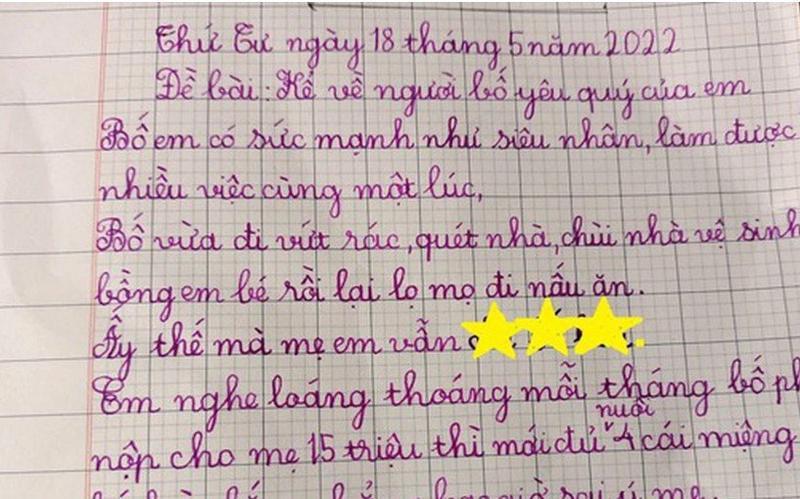 Thứ Tư ngày 18 tháng 5 năm 2022
Đề bài: Kể về người bố yêu quý của em
Bố em có sức mạnh như siêu nhân, làm được
nhiều việc cùng một lúc,
Bố vừa đi vứt rác, quét nhà, chùi nhà vệ sinh
bồng em bé rồi lại lọ mọ đi nấu ăn.
Ấy thế mà mẹ em vẫn
Em nghe loáng thoáng mỗi tháng bố
nộp cho mẹ 15 triệu thì mới đủ nuôi 4 cái miệng